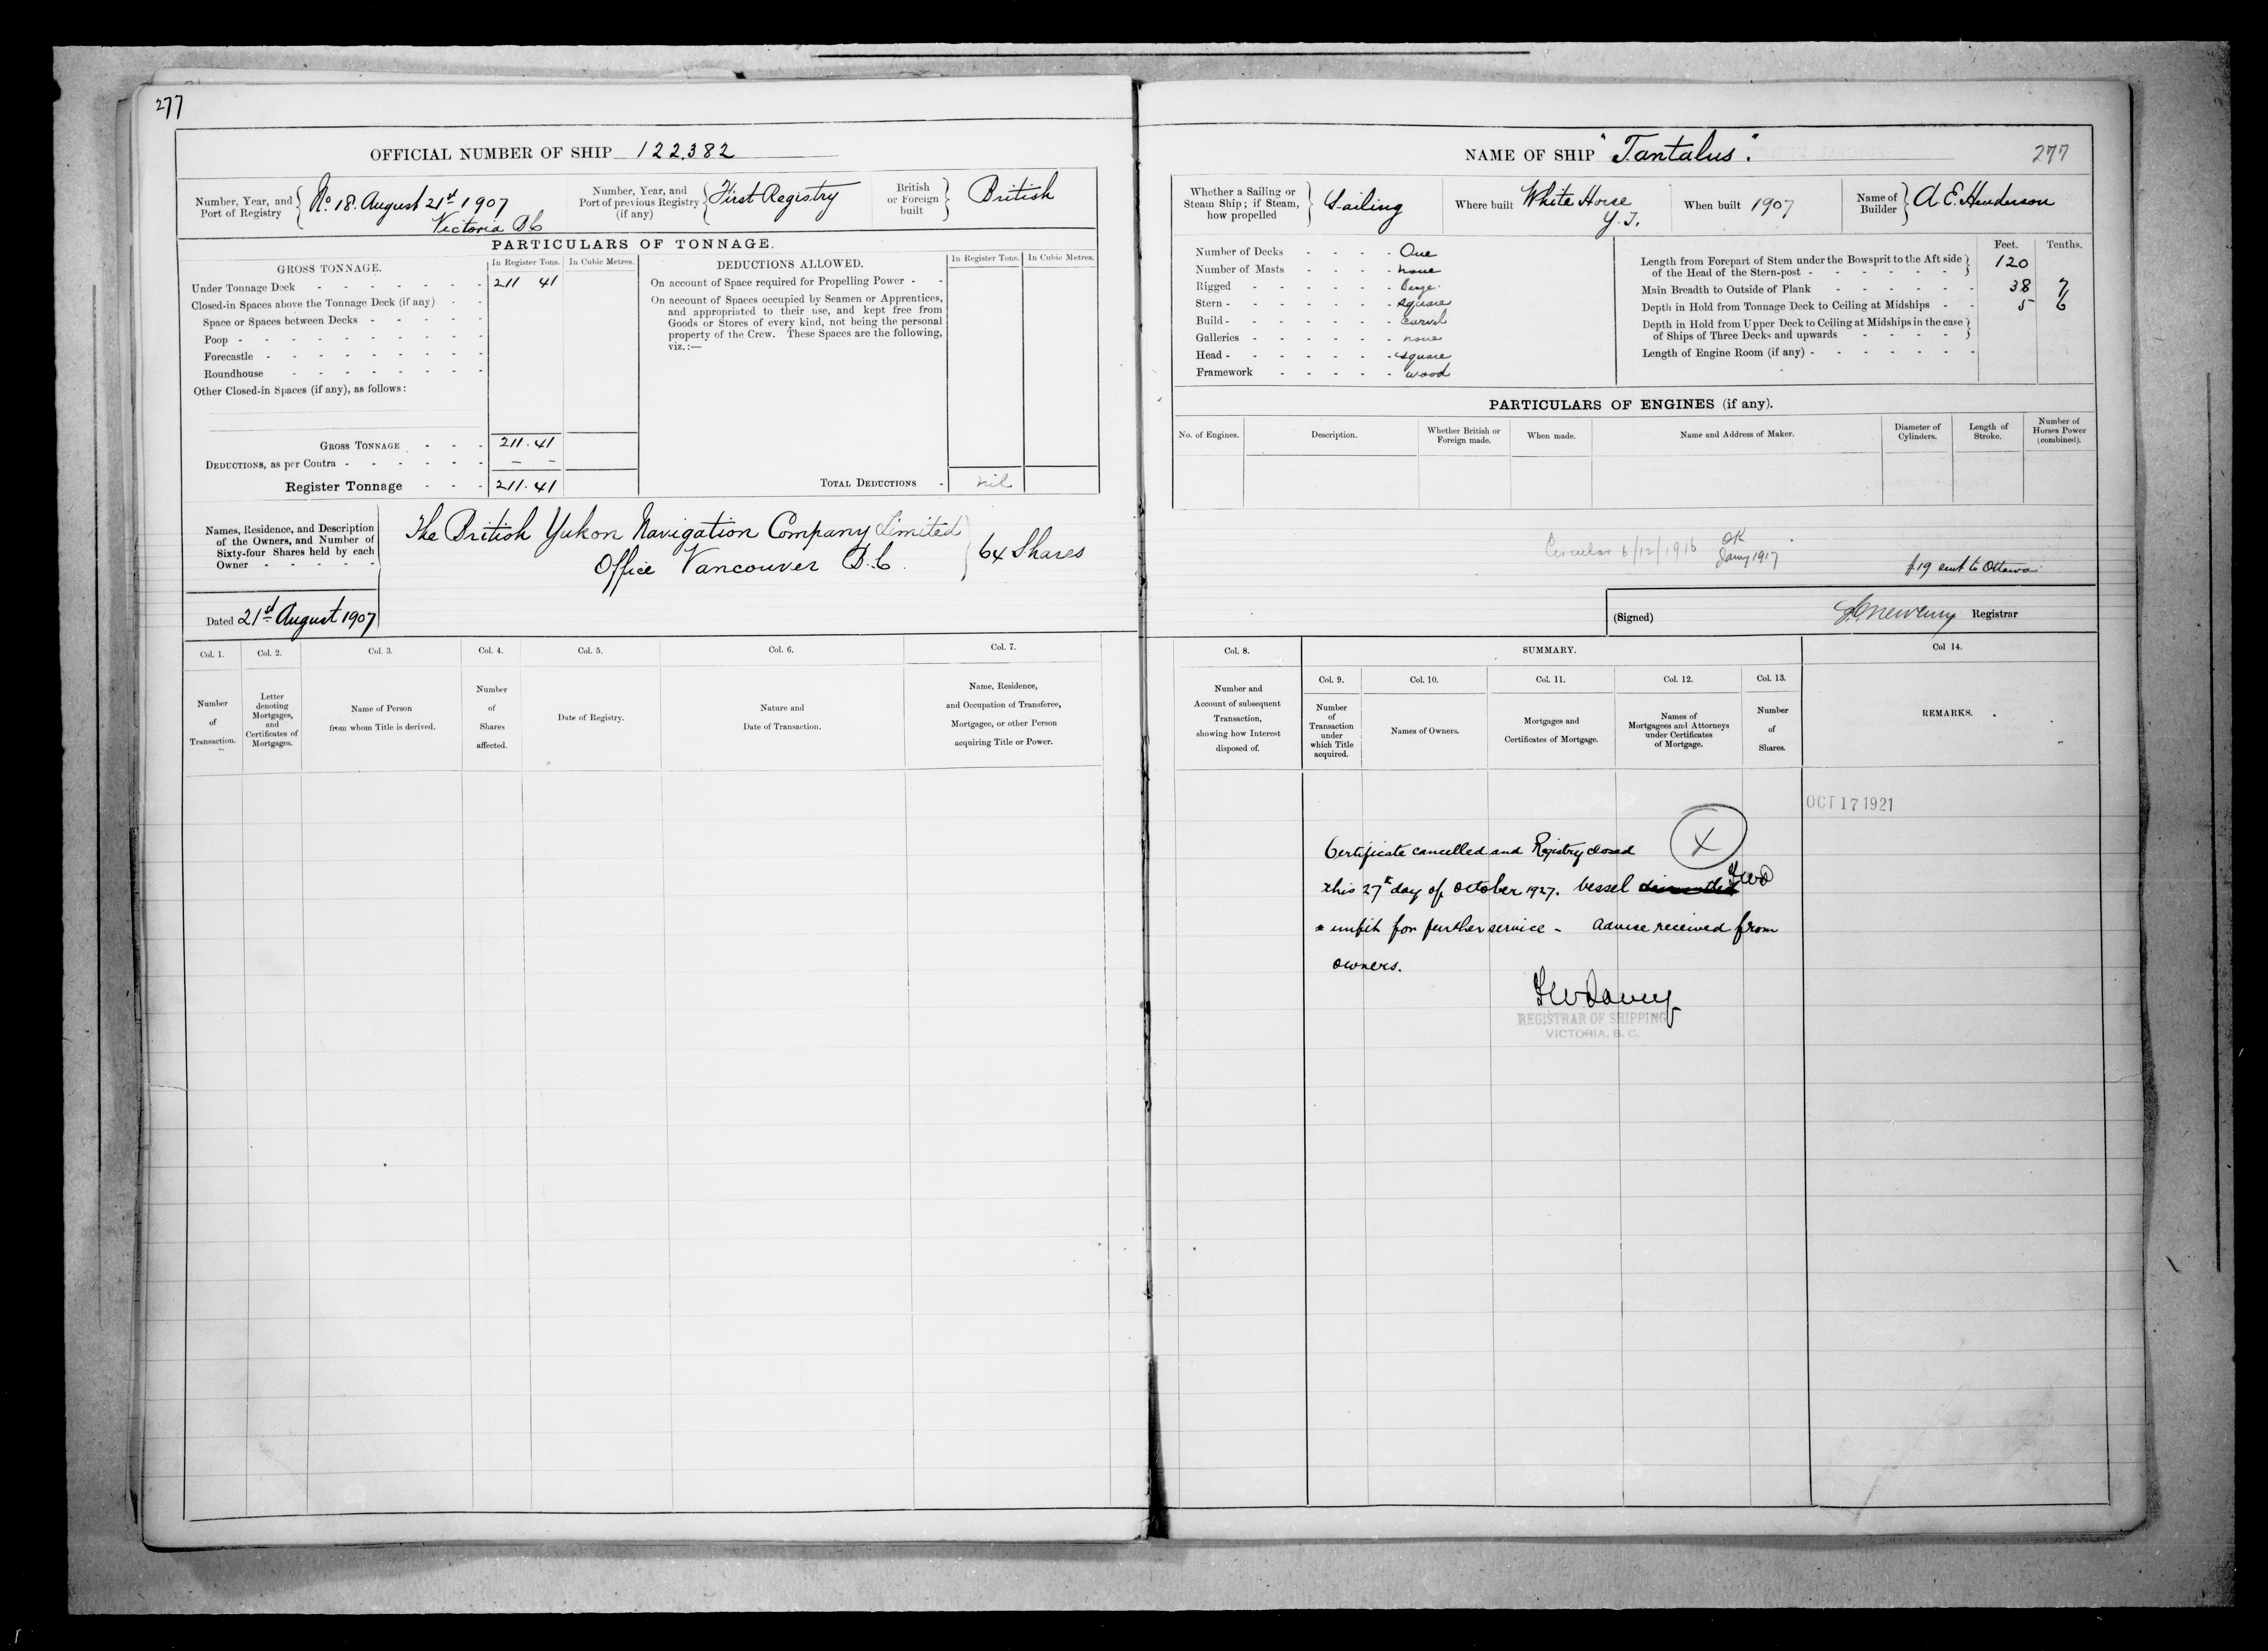 277
OFFICIAL NUMBER OF SHIP 122,382
Number, Year, and Port of Registry No 18. August 21st 1907
Victoria B.C
Number, Year, and Port of previous Registry (if any) First Registry
British or Foreign built British
PARTICULARS OF TONNAGE.
GROSS TONNAGE. In Register Tons. In Cubic Metres.
Under Tonnage Deck 211 41
Closed-in Spaces above the Tonnage Deck (if any)
Space or Spaces between Decks
Poop
Forecastle
Roundhouse
Other Closed-in Spaces (if any), as follows:
GROSS TONNAGE 211.41
DEDUCTIONS, as per Contra - -
Register Tonnage 211.41
DEDUCTIONS ALLOWED. In Register Tons. In Cubic Metres.
On account of Space required for Propelling Power
On account of Spaces occupied by Seamen or Apprentices,
and appropriated to their use, and kept free from
Goods or Stores of every kind, not being the personal
property of the Crew. These Spaces are the following,
viz.:—
TOTAL DEDUCTIONS nil
Names, Residence, and Description
of the Owners, and Number of
Sixty-four Shares held by each
Owner
The British Yukon Navigation Company Limited
Office Vancouver B.C.
64 Shares
Dated 21st August 1907
Col. 1. Col. 2. Col. 3. Col. 4. Col. 5. Col. 6. Col. 7.
Number of Transaction.
Letter denoting Mortgages, and Certificates of Mortgages.
Name of Person from whom Title is derived.
Number of Shares affected.
Date of Registry.
Nature and Date of Transaction.
Name, Residence, and Occupation of Transferee, Mortgagee, or other Person acquiring Title or Power.
NAME OF SHIP "Tantalus".
277
Whether a Sailing or Steam Ship; if Steam, how propelled Sailing
Where built White Horse
Y.T.
When built 1907
Name of Builder A E. Henderson
Number of Decks One
Number of Masts none
Rigged barge
Stern square
Build carvel
Galleries none
Head square
Framework wood
Feet. Tenths.
Length from Forepart of Stem under the Bowsprit to the Aft side of the Head of the Stern-post 120
Main Breadth to Outside of Plank 38 7
Depth in Hold from Tonnage Deck to Ceiling at Midships 5 6
Depth in Hold from Upper Deck to Ceiling at Midships in the case of Ships of Three Decks and upwards
Length of Engine Room (if any)
PARTICULARS OF ENGINES (if any).
No. of Engines.
Description.
Whether British or Foreign made.
When made.
Name and Address of Maker.
Diameter of Cylinders.
Length of Stroke.
Number of Horses Power (combined).
Circular 6/12/1916
OK
Jany 1917
19 sent to Ottawa
(Signed) Registrar
Col. 8. SUMMARY. Col 14.
Col. 9. Col. 10. Col. 11. Col. 12. Col. 13.
Number and Account of subsequent Transaction, showing how Interest disposed of.
Number of Transaction under which Title acquired.
Names of Owners.
Mortgages and Certificates of Mortgage.
Names of Mortgagees and Attorneys under Certificates of Mortgage.
Number of Shares.
REMARKS.
OCT 17 1921
X
Certificate cancelled and Registry closed
this 27th day of October 1927. Vessel
unfit for further service - advise received from
owners.
REGISTRAR OF SHIPPING
VICTORIA, B. C.